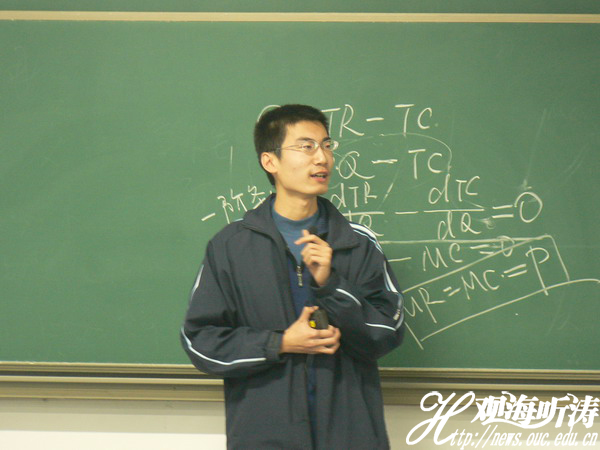 TR - TC
Q - TC
一阶条
dTR/dQ - dTC/dQ = 0
- MC = 0
MR = MC = P
观海听涛
Http://news.ouc.edu.cn